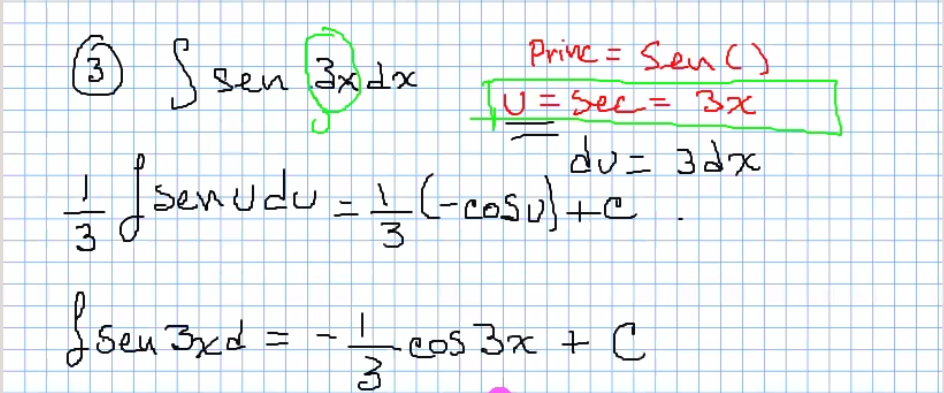 ③ ∫ sen 3x dx
Princ = Sen ( )
U = Sec = 3x
U
du = 3dx
1/3 ∫ sen u du = 1/3 (-cos u) + C .
∫ sen 3x d = - 1/3 cos 3x + C